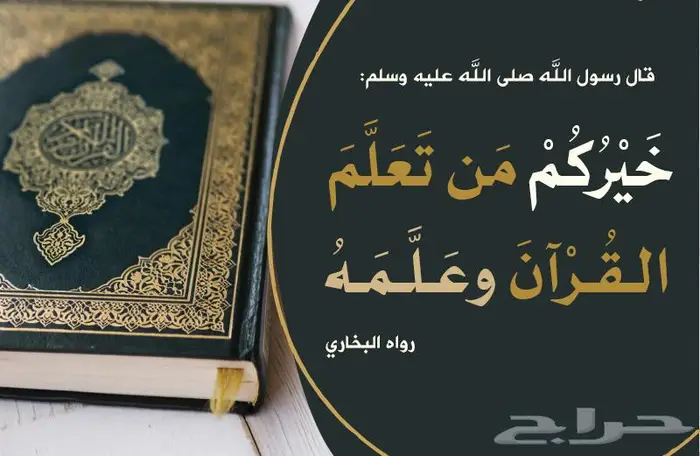 قال رسول الله صلى الله عليه وسلم:
خَيْرُكُمْ مَن تَعَلَّمَ
القُرْآنَ وعَلَّمَهُ
رواه البخاري
حراج